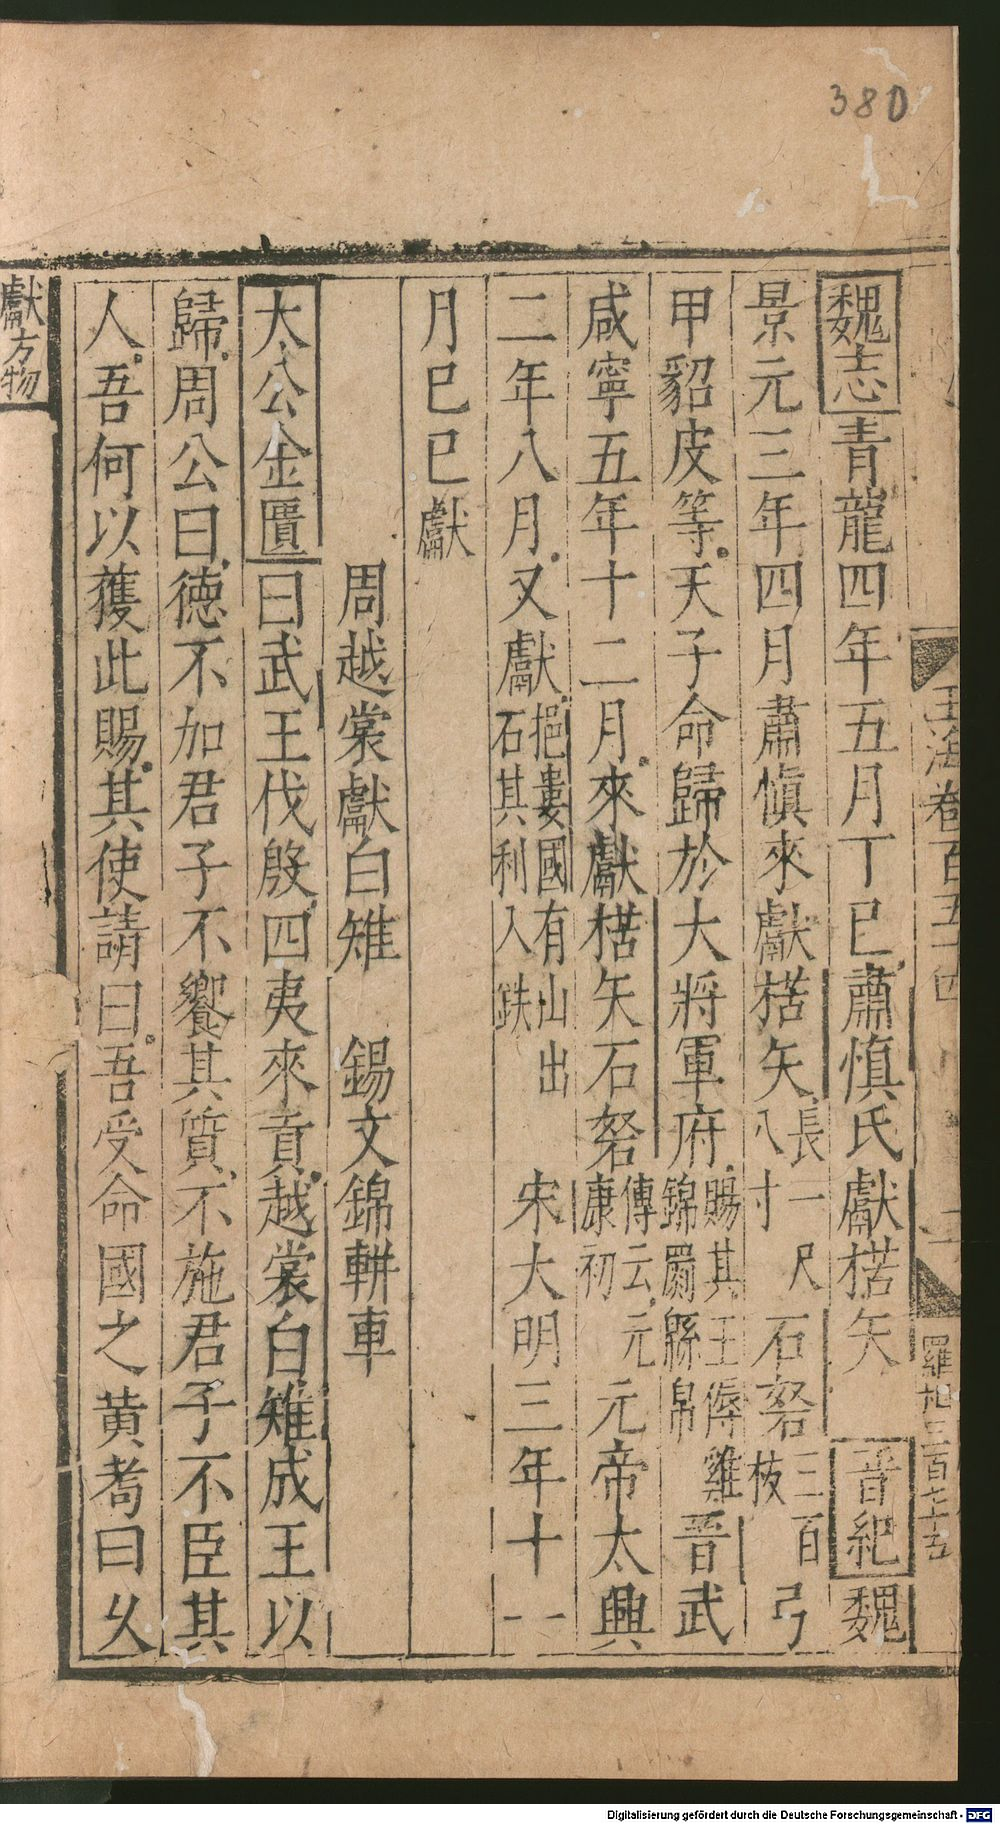 380
玉海卷百五十四
羅旭三百七十五
魏志青龍四年五月丁巳肅慎氏獻楛矢 晋紀魏
景元三年四月肅慎來獻楛矢長一尺八寸石砮三百枝弓
甲貂皮等天子命歸於大將軍府賜其王傉雞錦罽緜帛晋武
咸寧五年十二月來獻楛矢石砮傳云元康初元帝太興
二年八月又獻挹婁國有山出石其利入鉄 宋大明三年十一
月己巳獻
周越裳獻白雉 錫文錦軿車
太公金匱曰武王伐殷四夷來貢越裳白雉成王以
歸周公曰德不加君子不饗其質不施君子不臣其
人吾何以獲此賜其使請曰吾受命國之黄耇曰久
獻方物
Digitalisierung gefördert durch die Deutsche Forschungsgemeinschaft - DFG